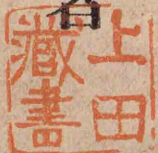 上田
藏書